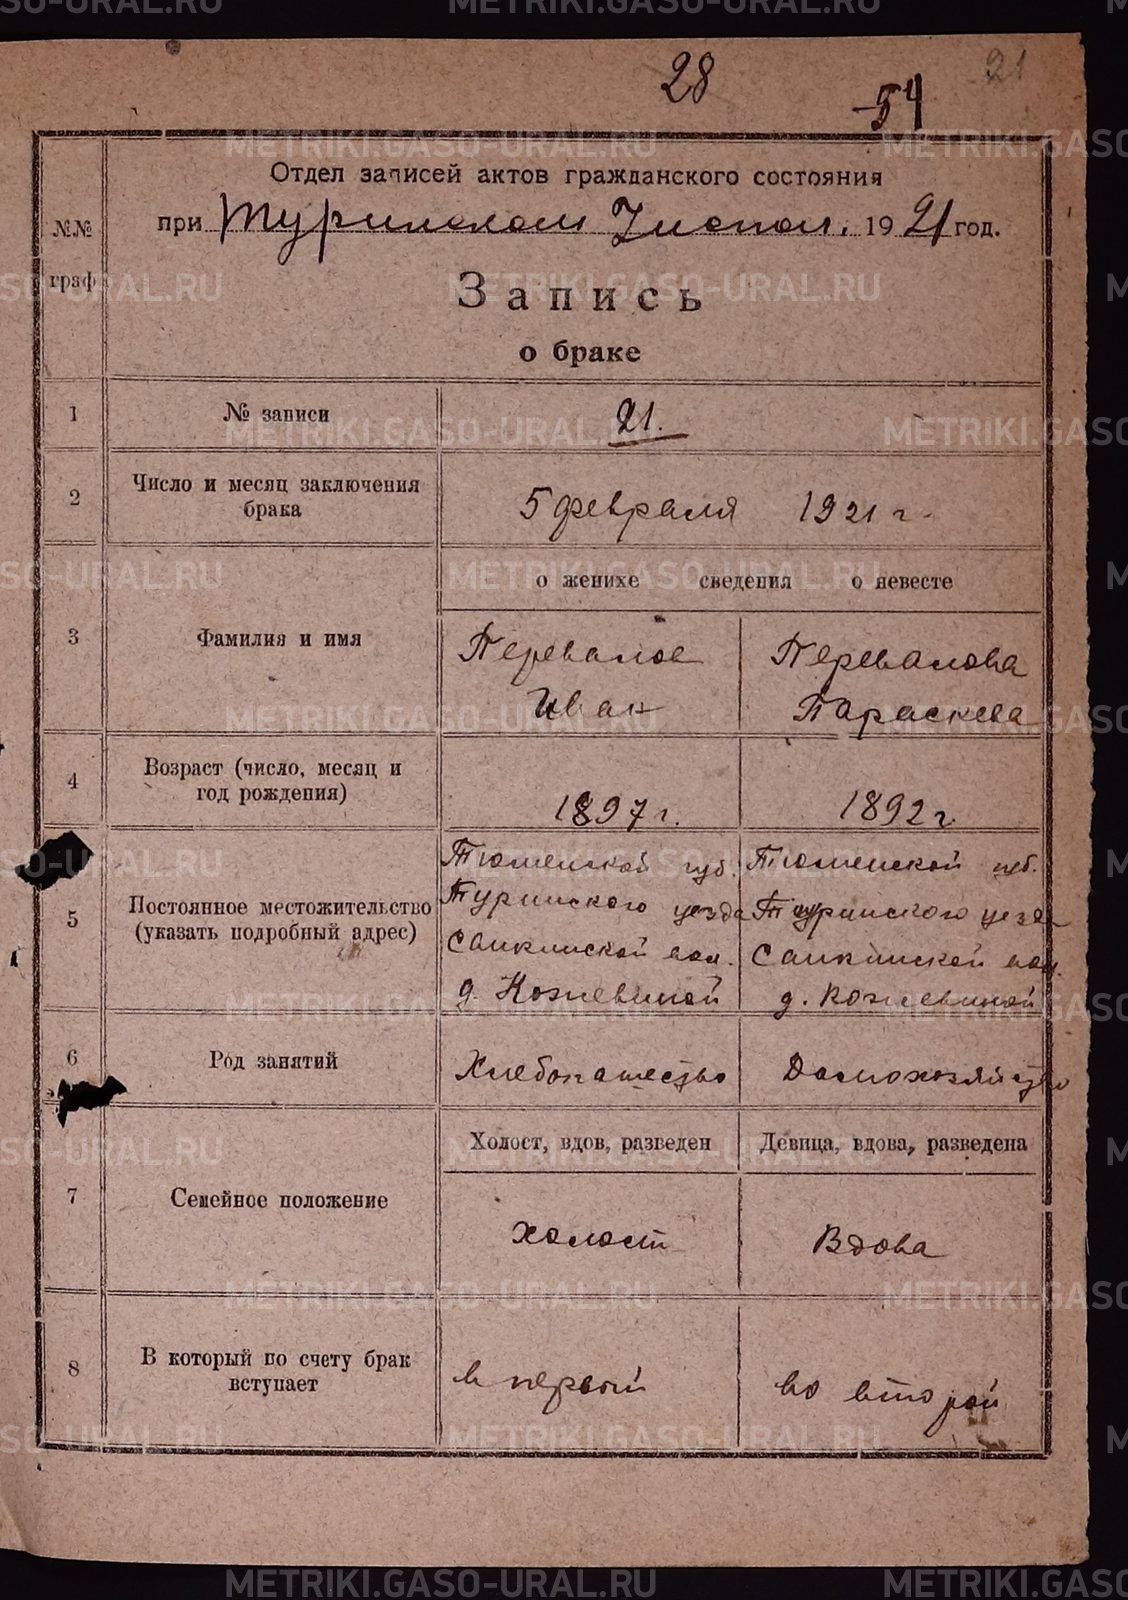 28
54
21
Отдел записей актов гражданского состояния
при Туринском Уисполк. 1921 год.
№№ граф
Запись
о браке
1 № записи 21.
2 Число и месяц заключения брака 5 февраля 1921 г.
о женихе сведения о невесте
3 Фамилия и имя
Перевалов Перевалова
Иван Параскева
4 Возраст (число, месяц и год рождения) 1897 г. 1892 г
5 Постоянное местожительство (указать подробный адрес)
Тюменской губ. Тюменской губ.
Туринского уезда Туринского уезда
Санкинской вол. Санкинской вол.
д. Кожевиной д. Кожевиной
6 Род занятий Хлебопашество Домохозяйство
Холост, вдов, разведен Девица, вдова, разведена
7 Семейное положение холост Вдова
8 В который по счету брак вступает в первый во второй
METRIKI.GASO-URAL.RU